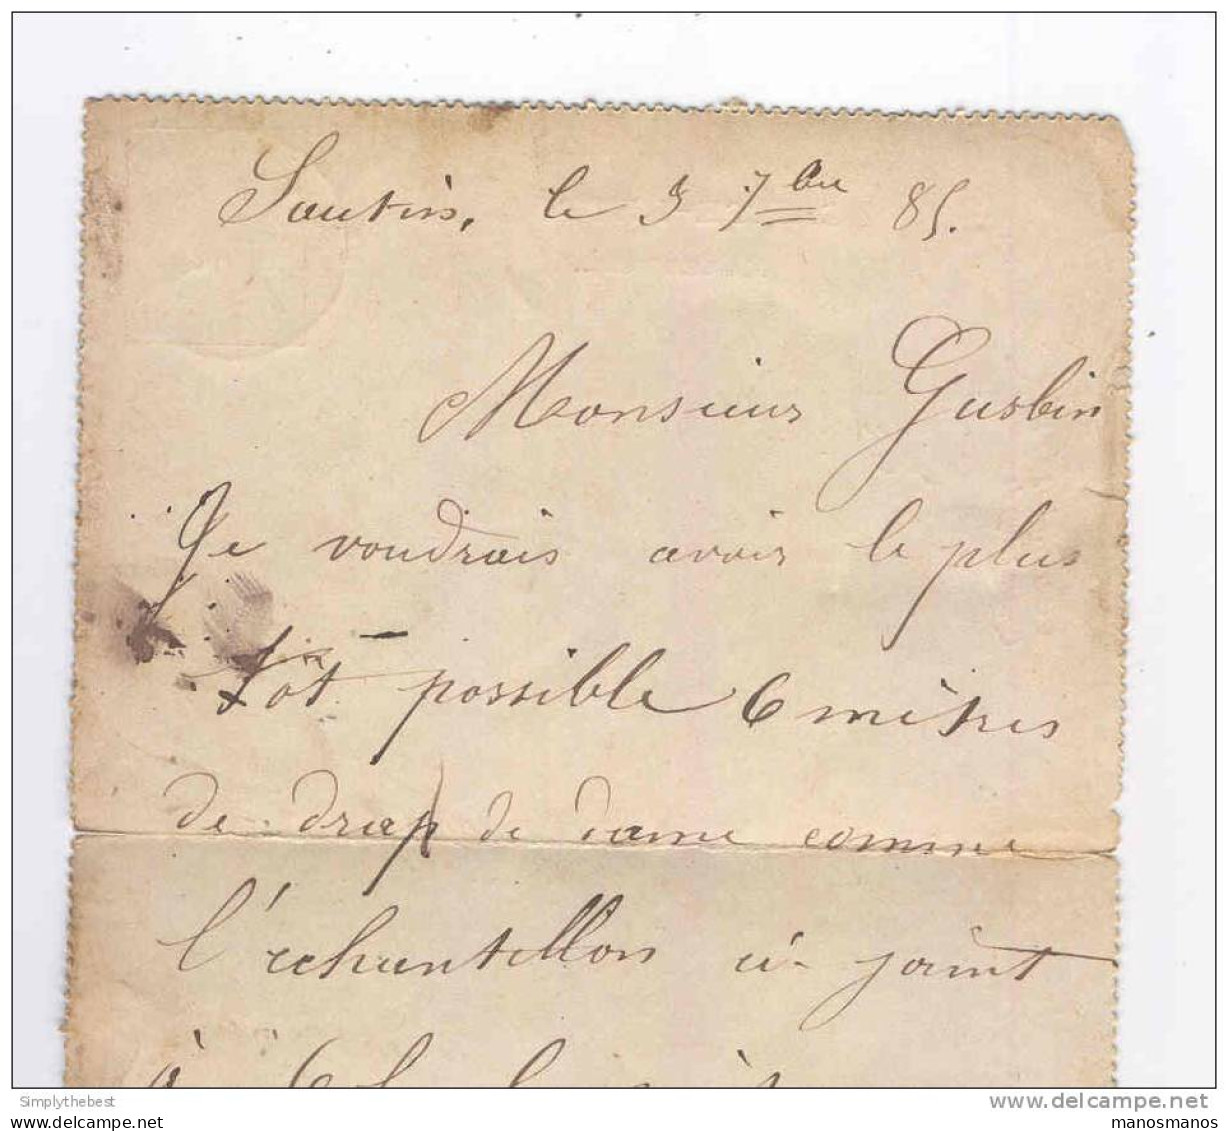 Sautin, le 3 7bre 85.
Monsieur Guslin
Je voudrais avoir le plus
tôt possible 6 mètres
de drap de dame comme
l'échantillon ci-joint
à 6
Simplythebest
delcampe.net
manosmanos